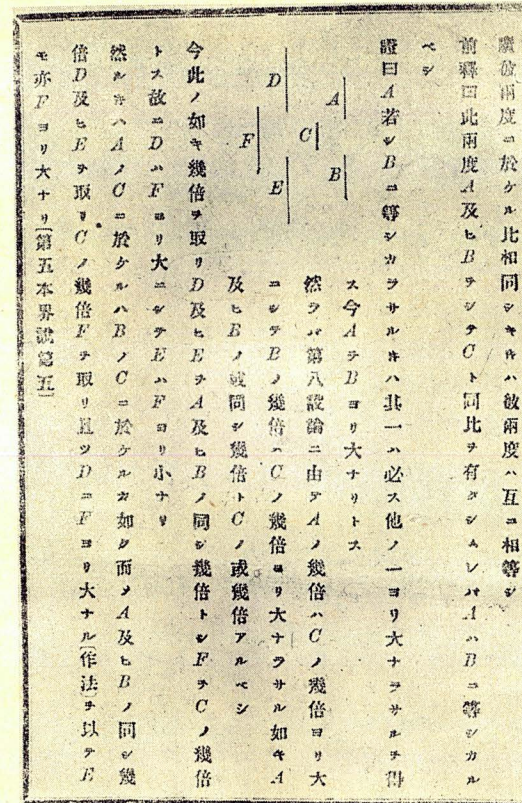 數彼兩度ニ於ケル比相同シキキハ彼兩度ハ互ニ相等シ
前釋曰此兩度A及ヒBヲシテCト同比ヲ有タシムレバAハBニ等シカル
ベシ
證曰A若シBニ等シカラサルキハ其一ハ必ス他ノ一ヨリ大ナラサルヲ得
ス今AヲBヨリ大ナリトス
然ラバ第八設論ニ由テAノ幾倍ハCノ幾倍ヨリ大
ニシテBノ幾倍ハCノ幾倍ヨリ大ナラサル如キA
及ヒBノ或同シ幾倍トCノ或幾倍アルベシ
A
B
C
D
E
F
今此ノ如キ幾倍ヲ取リD及ヒEヲA及ヒBノ同シ幾倍トシFヲCノ幾倍
トス故ニDハFヨリ大ニシテEハFヨリ小ナリ
然ルキハAノCニ於ケルハBノCニ於ケルカ如シ而メA及ヒBノ同シ幾
倍D及ヒEヲ取リCノ幾倍Fヲ取リ且ツDニFヨリ大ナル〔作法〕ヲ以テE
モ亦Fヨリ大ナリ〔第五本界説第五〕